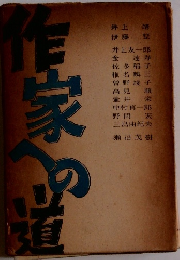 作家への道
井上 靖
伊藤 整
井上友一郎
金達寿
佐多稲子
椎名麟三
曽野綾子
高見 順
壷井 栄
中村真一郎
野間 宏
三島由紀夫
瀬沼茂樹